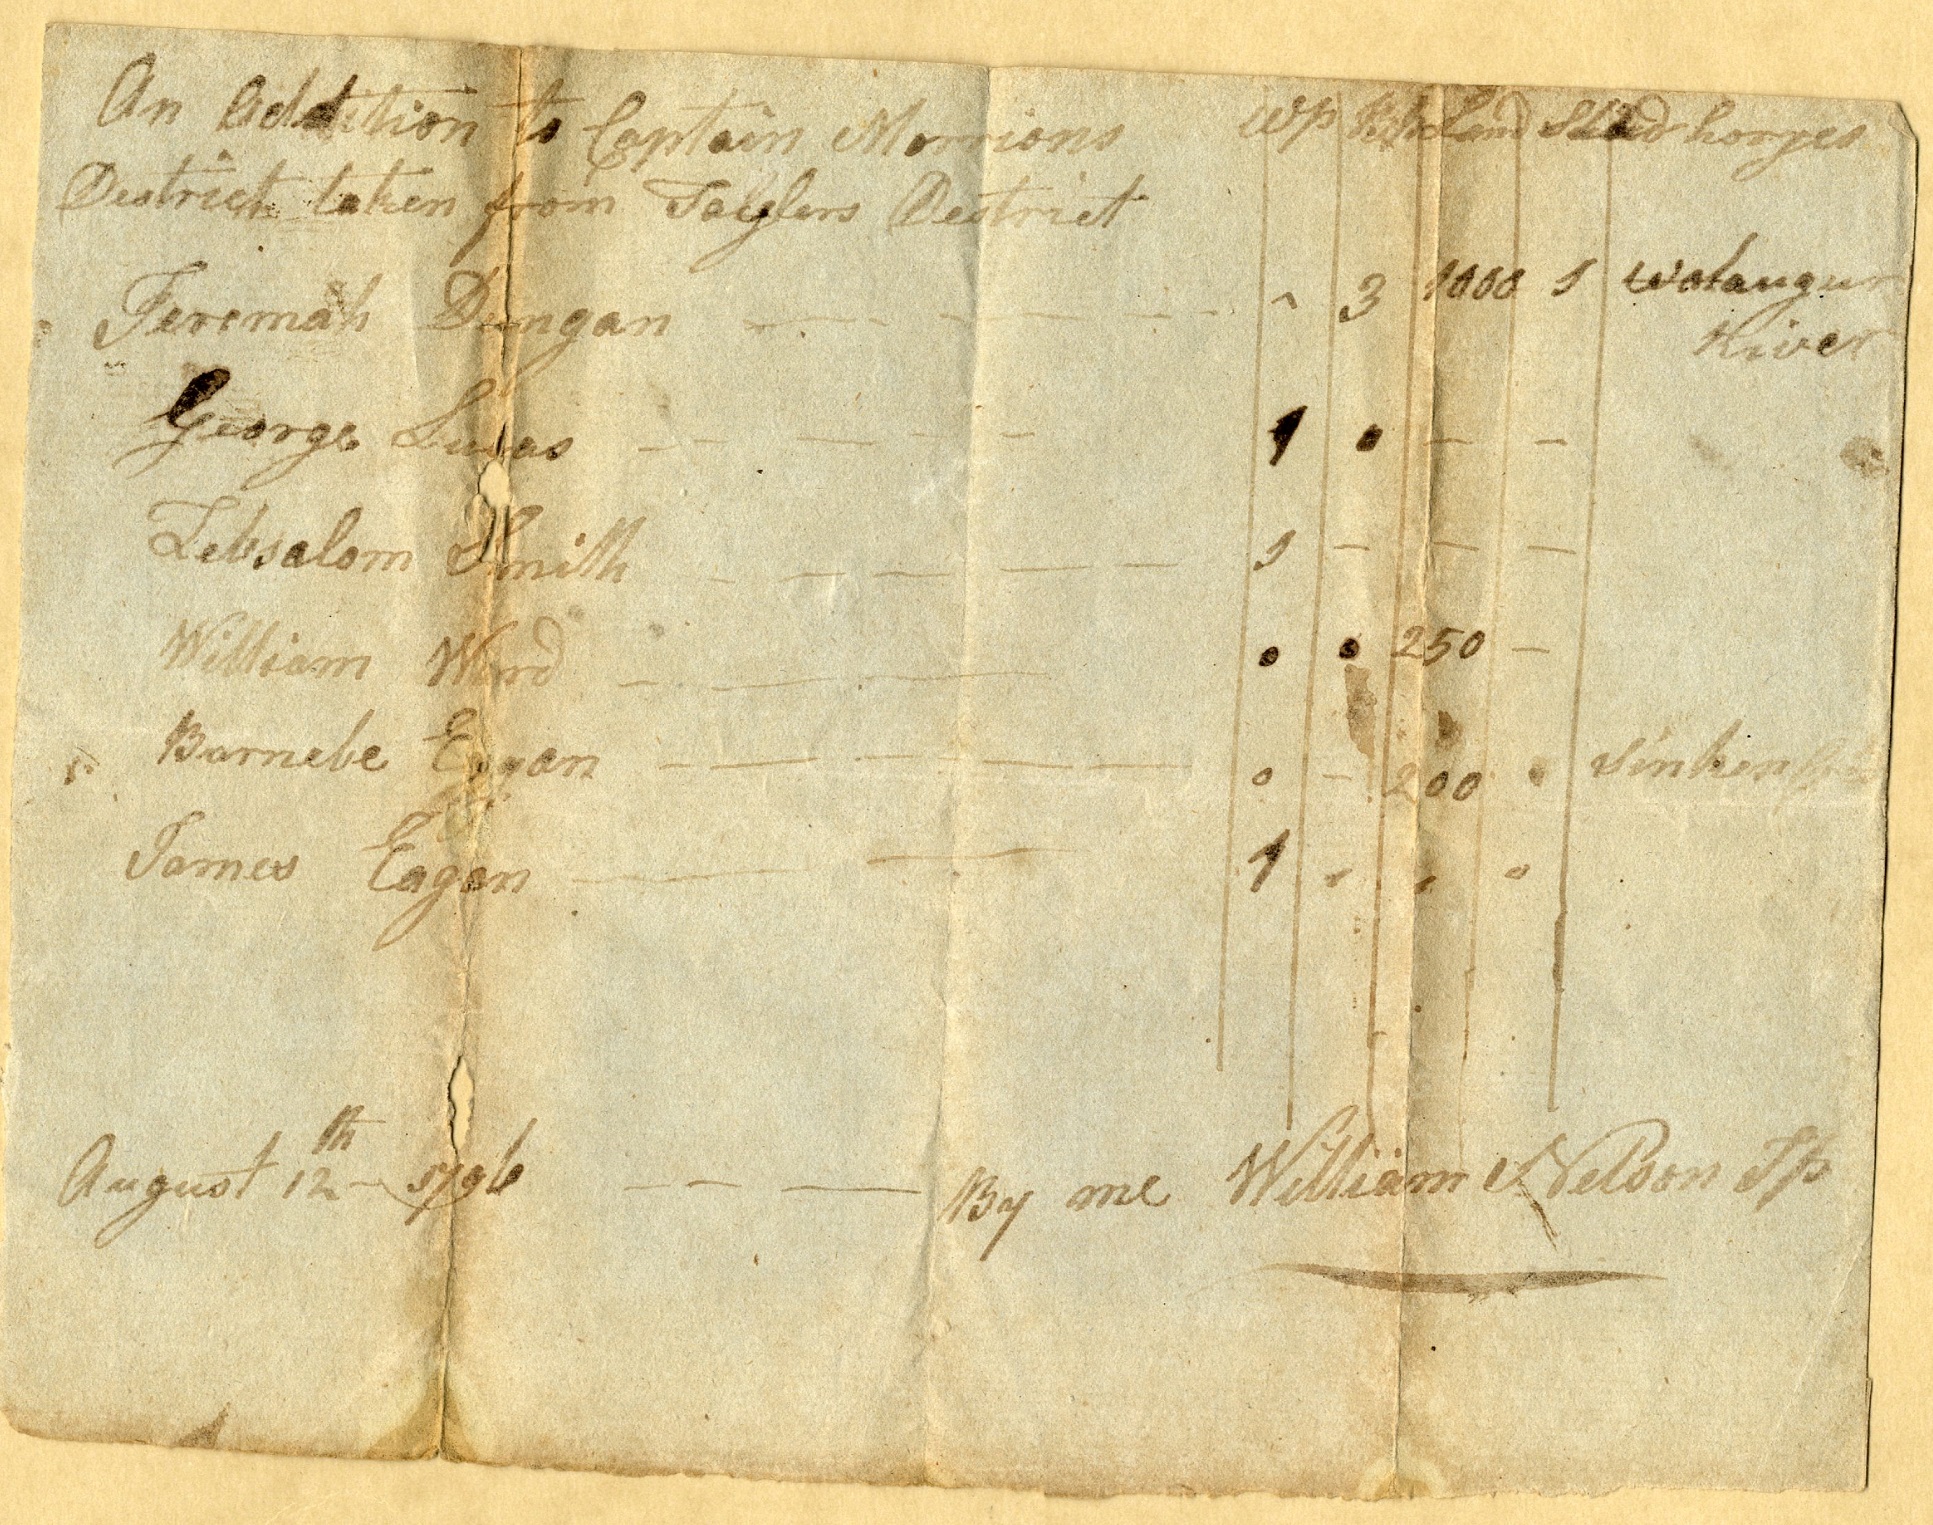 An Addition to Captain Morrisons WP BP Land Stud horses
District taken from Taylors District
Jeremah Dungan - - - - - - 3 1000 1 Wataugur
River
George Lucas - - - - - 1 - -
Lebsalom Smith - - - - - - 1 - - -
William Ward - - - - 250 -
Barnebe Eagan - - - - - 0 - 200 Sinken
James Eagan - - - 1
August 12th - 1796 - - - By me William Nelson Jp